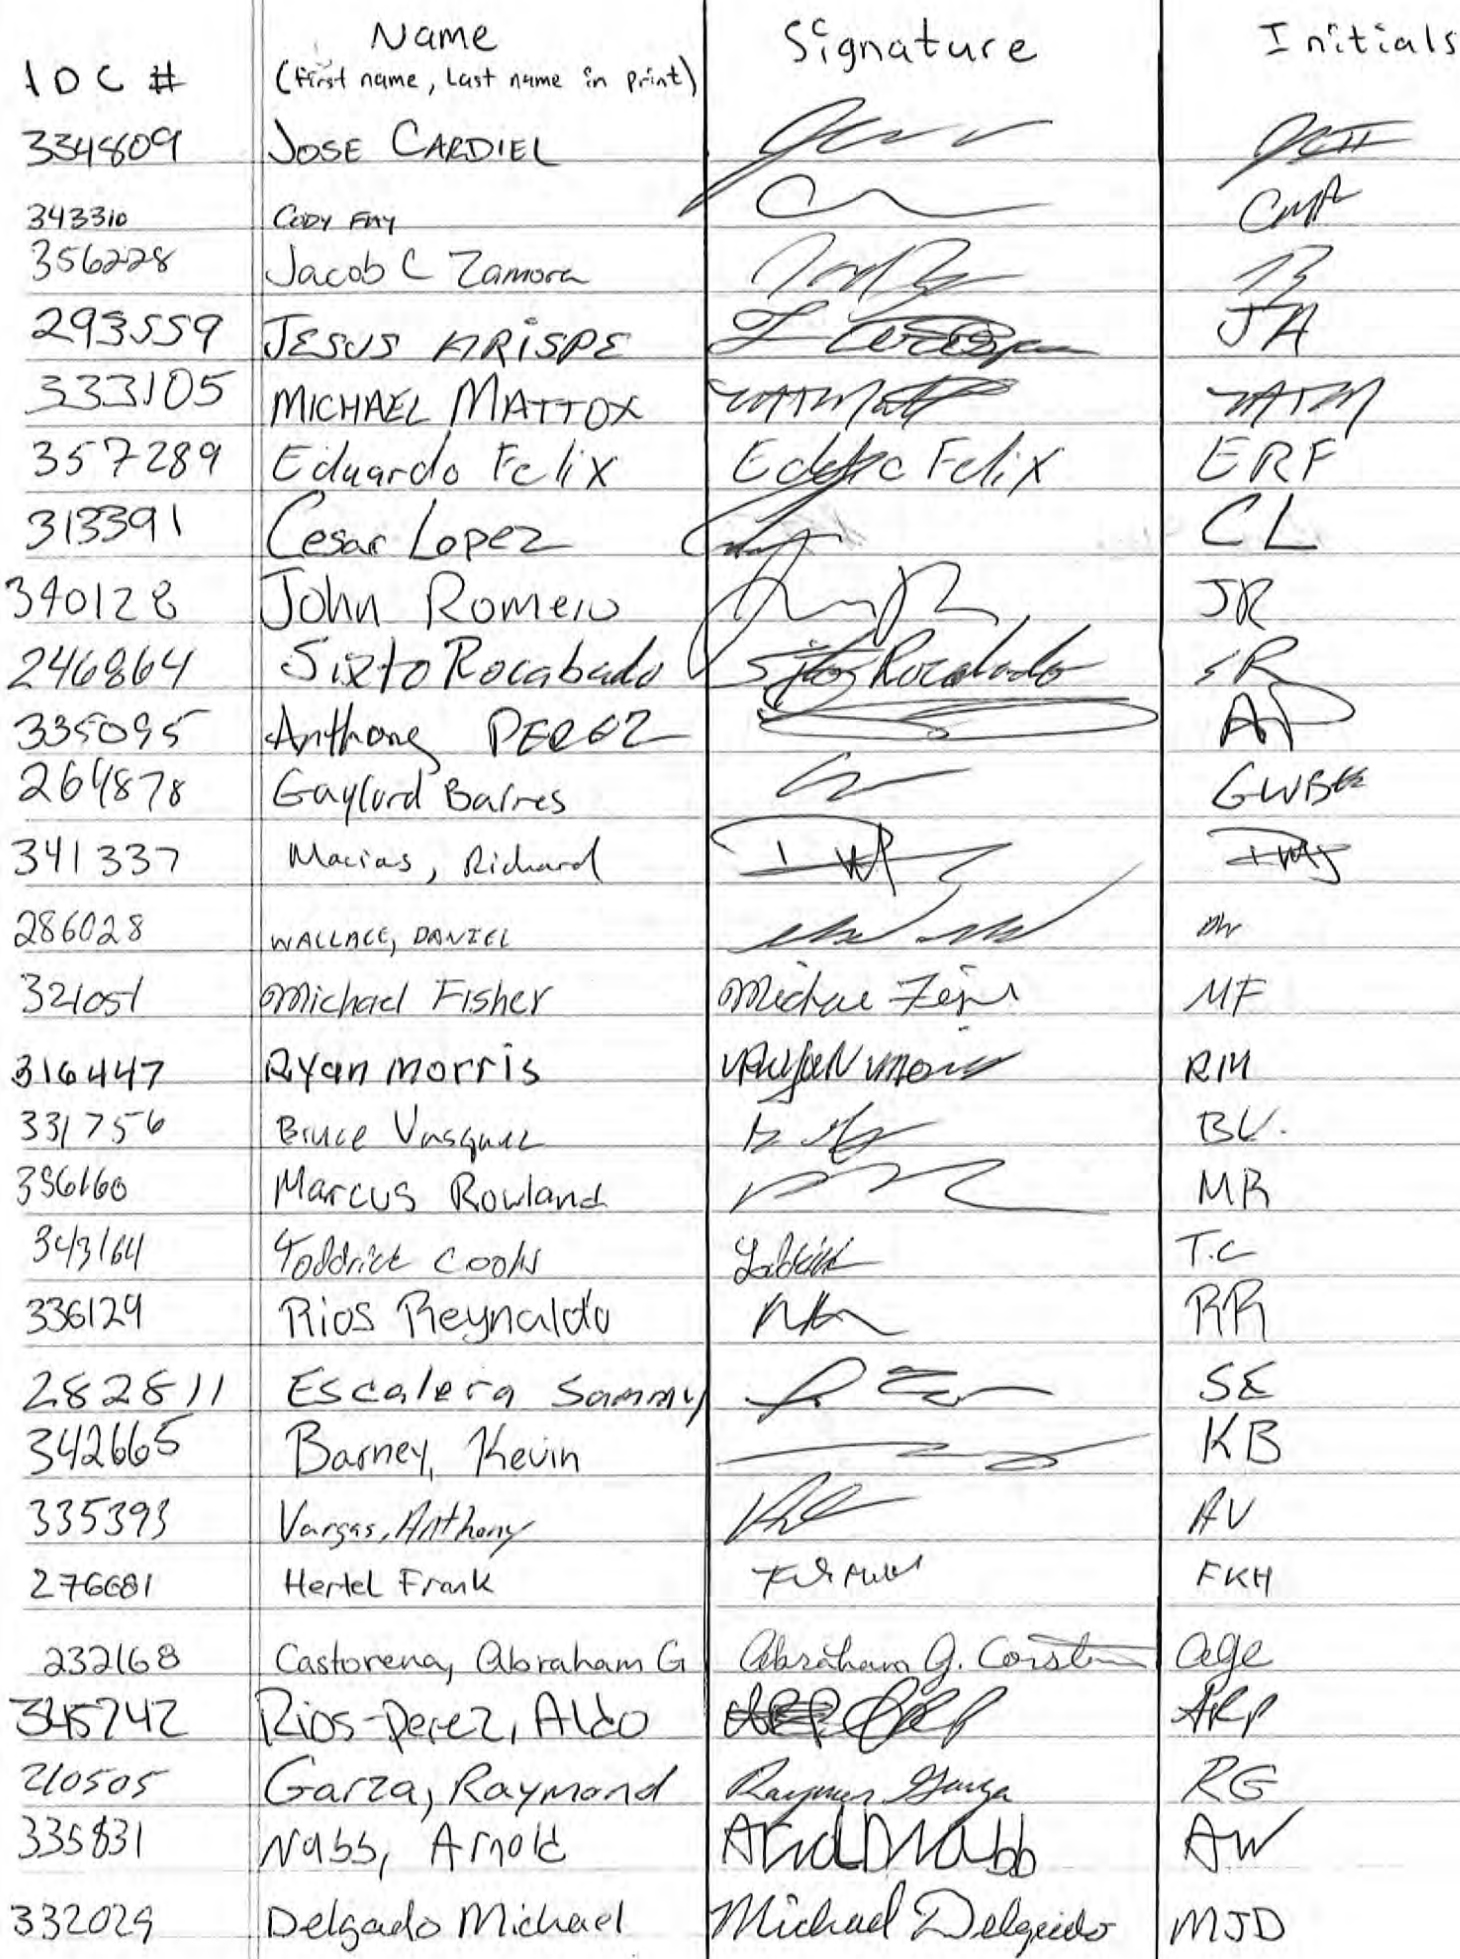 IDC # Name Signature Initials
(first name, Last name in print)
334809 JOSE CARDIEL
343310 CODY FAY
356228 Jacob C Zamora
293559 JESUS ARISPE JA
333105 MICHAEL MATTOX MATM
357289 Eduardo Felix Felix ERF
313391 Cesar Lopez CL
340128 John Romero JR
246864 Sixto Rocabado Rocabado SR
335095 Anthony PEREZ AP
264878 Gaylord Barnes GWB
341337 Macias, Richard
286028 WALLACE, DANIEL DW
321051 Michael Fisher MF
316447 Ryan morris RM
331756 Bruce Vasquez BV.
336160 Marcus Rowland MR
343164 Toddrick Cooks T.C
336129 Rios Reynaldo RR
282811 Escalera Sammy SE
342665 Barney, Kevin KB
335393 Vargas, Anthony AV
276681 Hertel Frank FKH
232168 Castorena, Abraham G Abraham G. agc
345742 Rios-Perez, Aldo ARP
210505 Garza, Raymond Garza RG
335831 Nabb, Arnold Nabb AW
332029 Delgado Michael Michael Delgado MJD